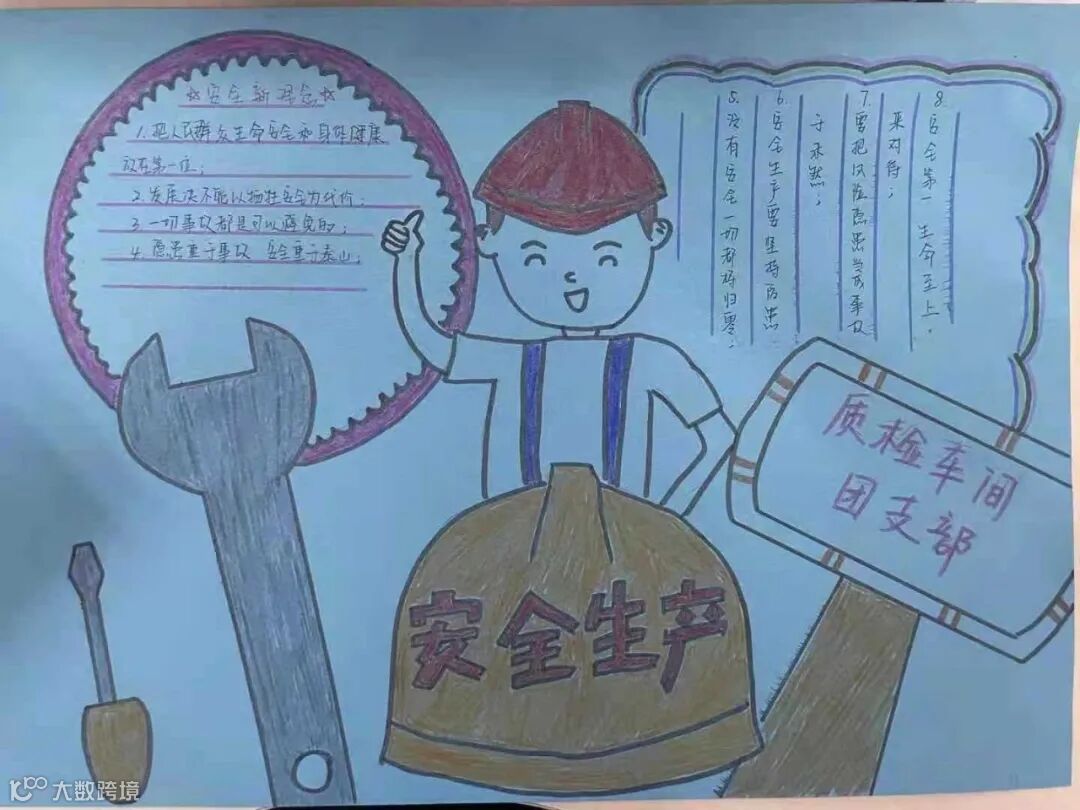 ☆安全新理念☆
1.把人民群众生命安全和身体健康
放在第一位;
2.发展决不能以牺牲安全为代价;
3.一切事故都是可以避免的;
4.隐患重于事故 安全重于泰山;
5.没有安全一切都将归零;
6.安全生产要坚持防患
于未然;
7.要把风险隐患当成事故
来对待;
8.安全第一 生命至上。
质检车间
团支部
安全生产
大数跨境